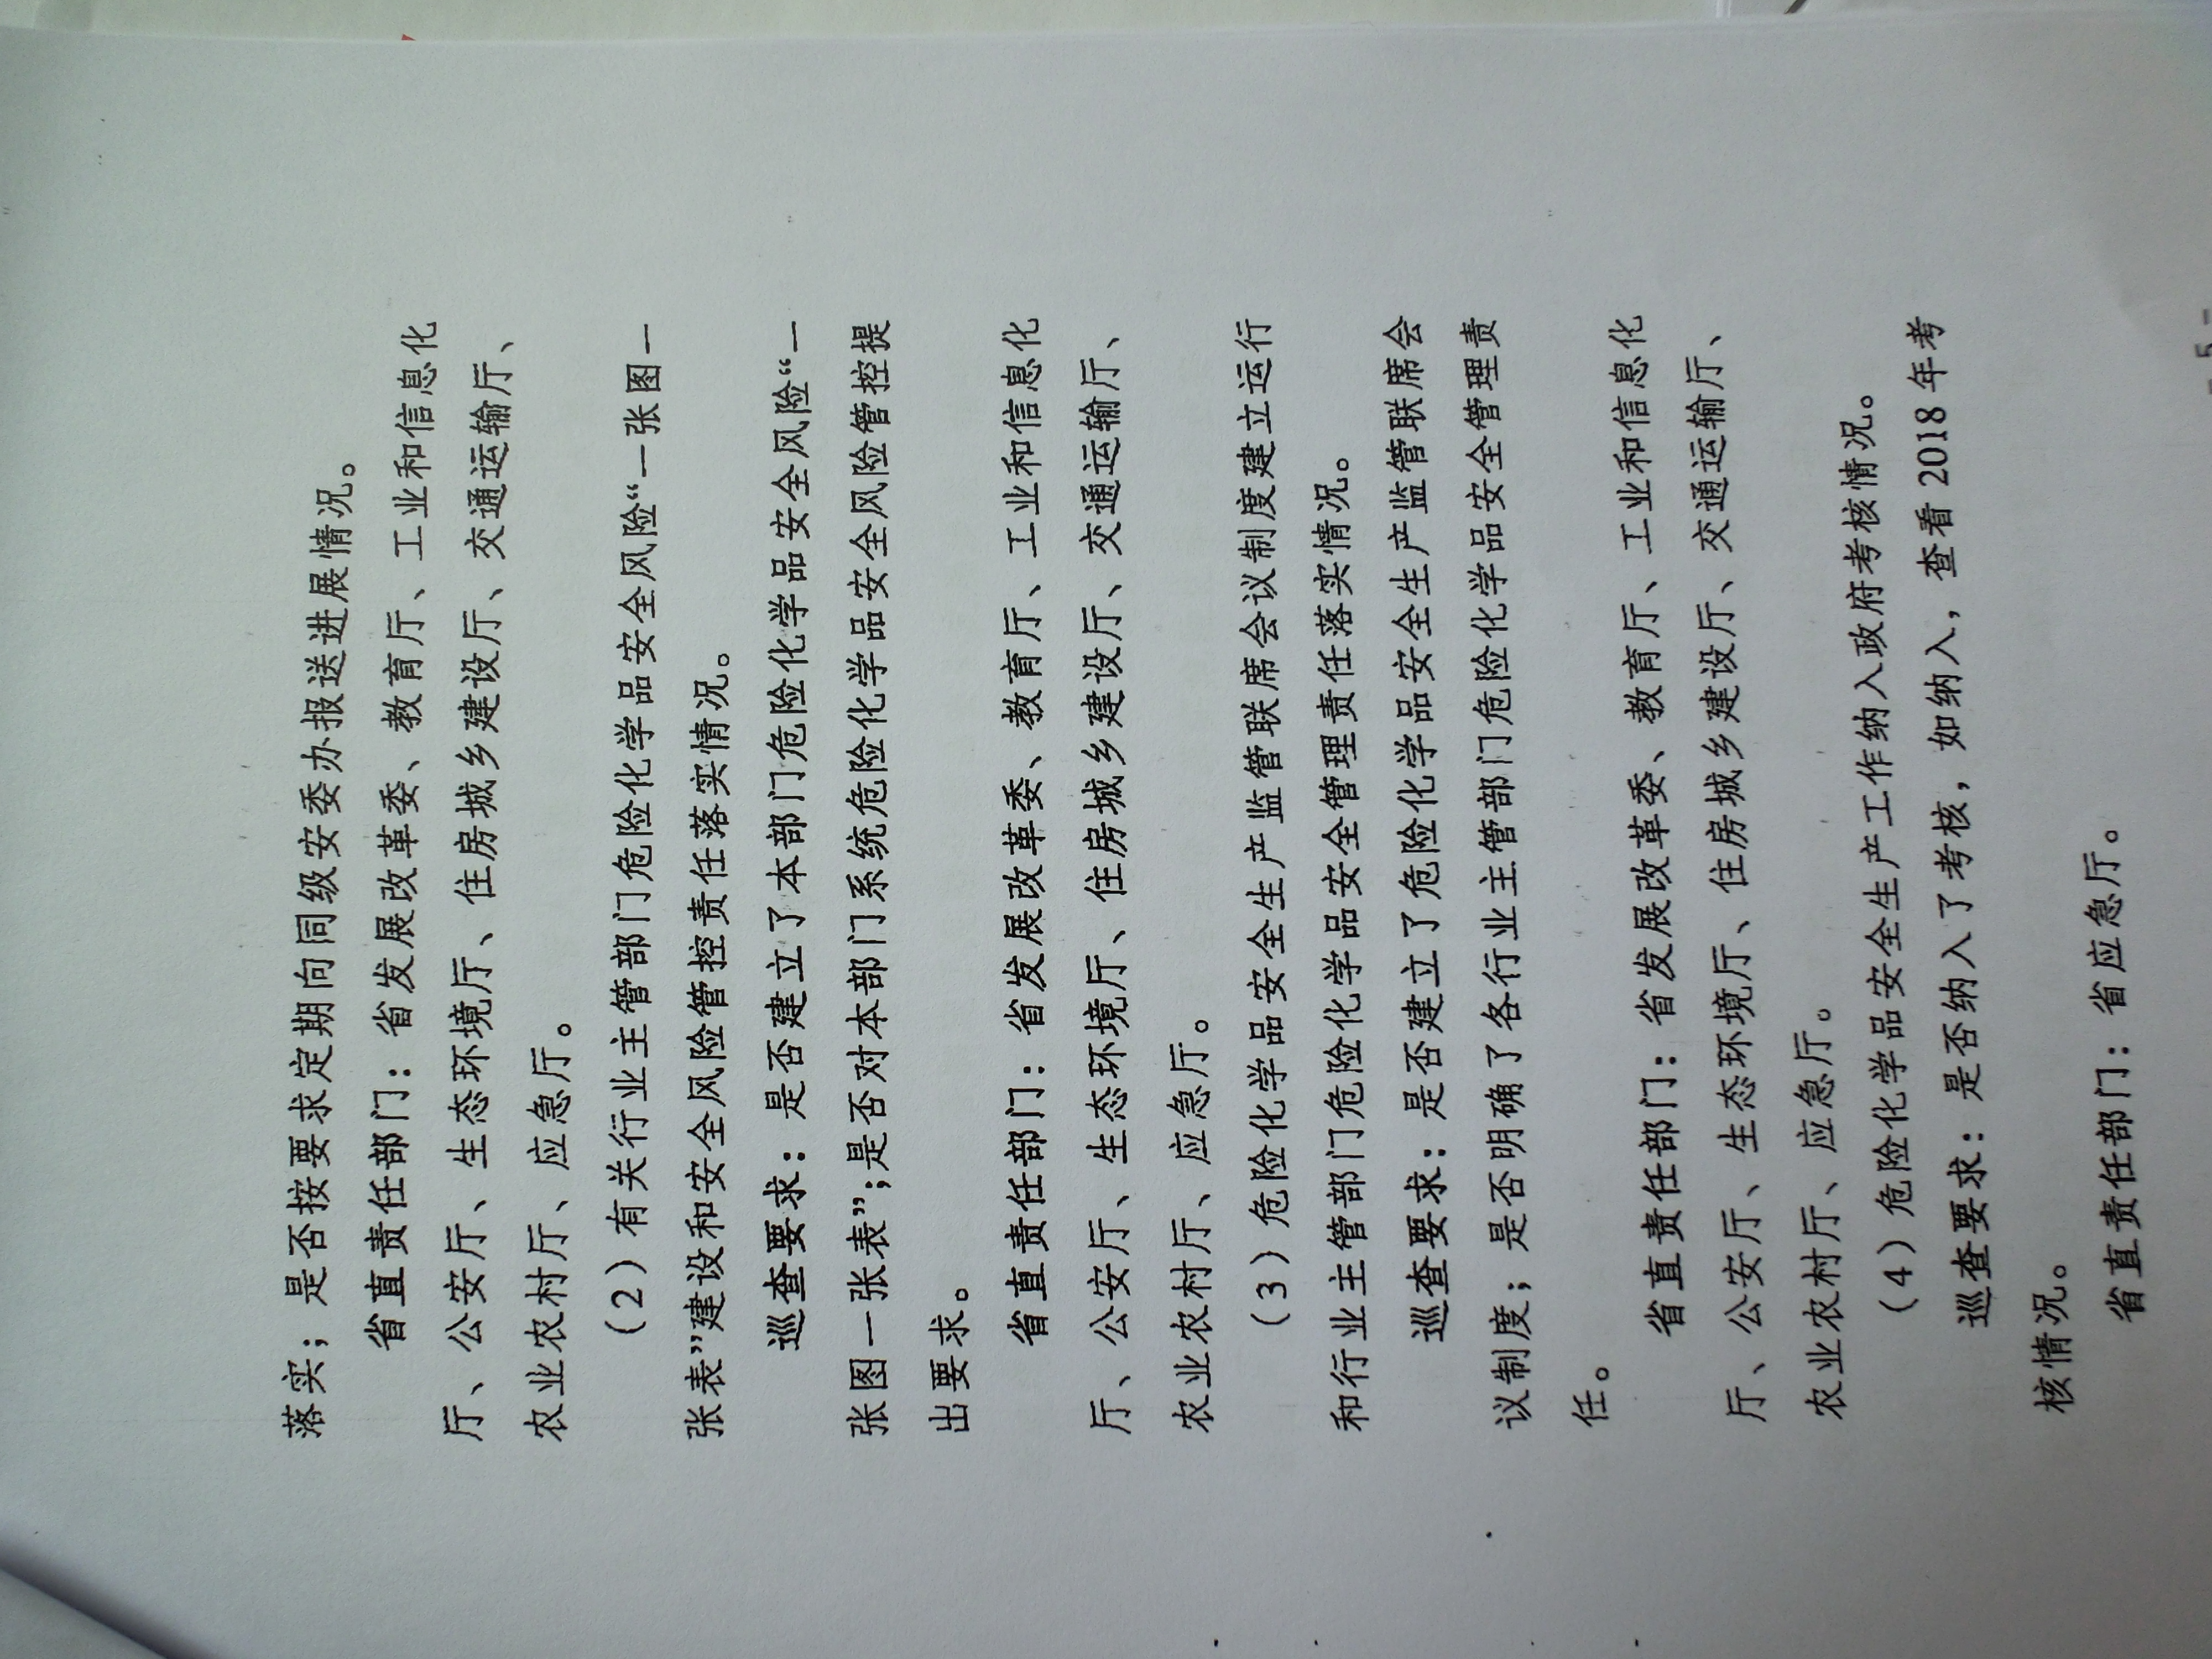 落实；是否按要求定期向同级安委办报送进展情况。
省直责任部门：省发展改革委、教育厅、工业和信息化
厅、公安厅、生态环境厅、住房城乡建设厅、交通运输厅、
农业农村厅、应急厅。
（2）有关行业主管部门危险化学品安全风险“一张图一
张表”建设和安全风险管控责任落实情况。
巡查要求：是否建立了本部门危险化学品安全风险“一
张图一张表”；是否对本部门系统危险化学品安全风险管控提
出要求。
省直责任部门：省发展改革委、教育厅、工业和信息化
厅、公安厅、生态环境厅、住房城乡建设厅、交通运输厅、
农业农村厅、应急厅。
（3）危险化学品安全生产监管联席会议制度建立运行
和行业主管部门危险化学品安全管理责任落实情况。
巡查要求：是否建立了危险化学品安全生产监管联席会
议制度；是否明确了各行业主管部门危险化学品安全管理责
任。
省直责任部门：省发展改革委、教育厅、工业和信息化
厅、公安厅、生态环境厅、住房城乡建设厅、交通运输厅、
农业农村厅、应急厅。
（4）危险化学品安全生产工作纳入政府考核情况。
巡查要求：是否纳入了考核，如纳入，查看 2018 年考
核情况。
省直责任部门：省应急厅。
- 5 -